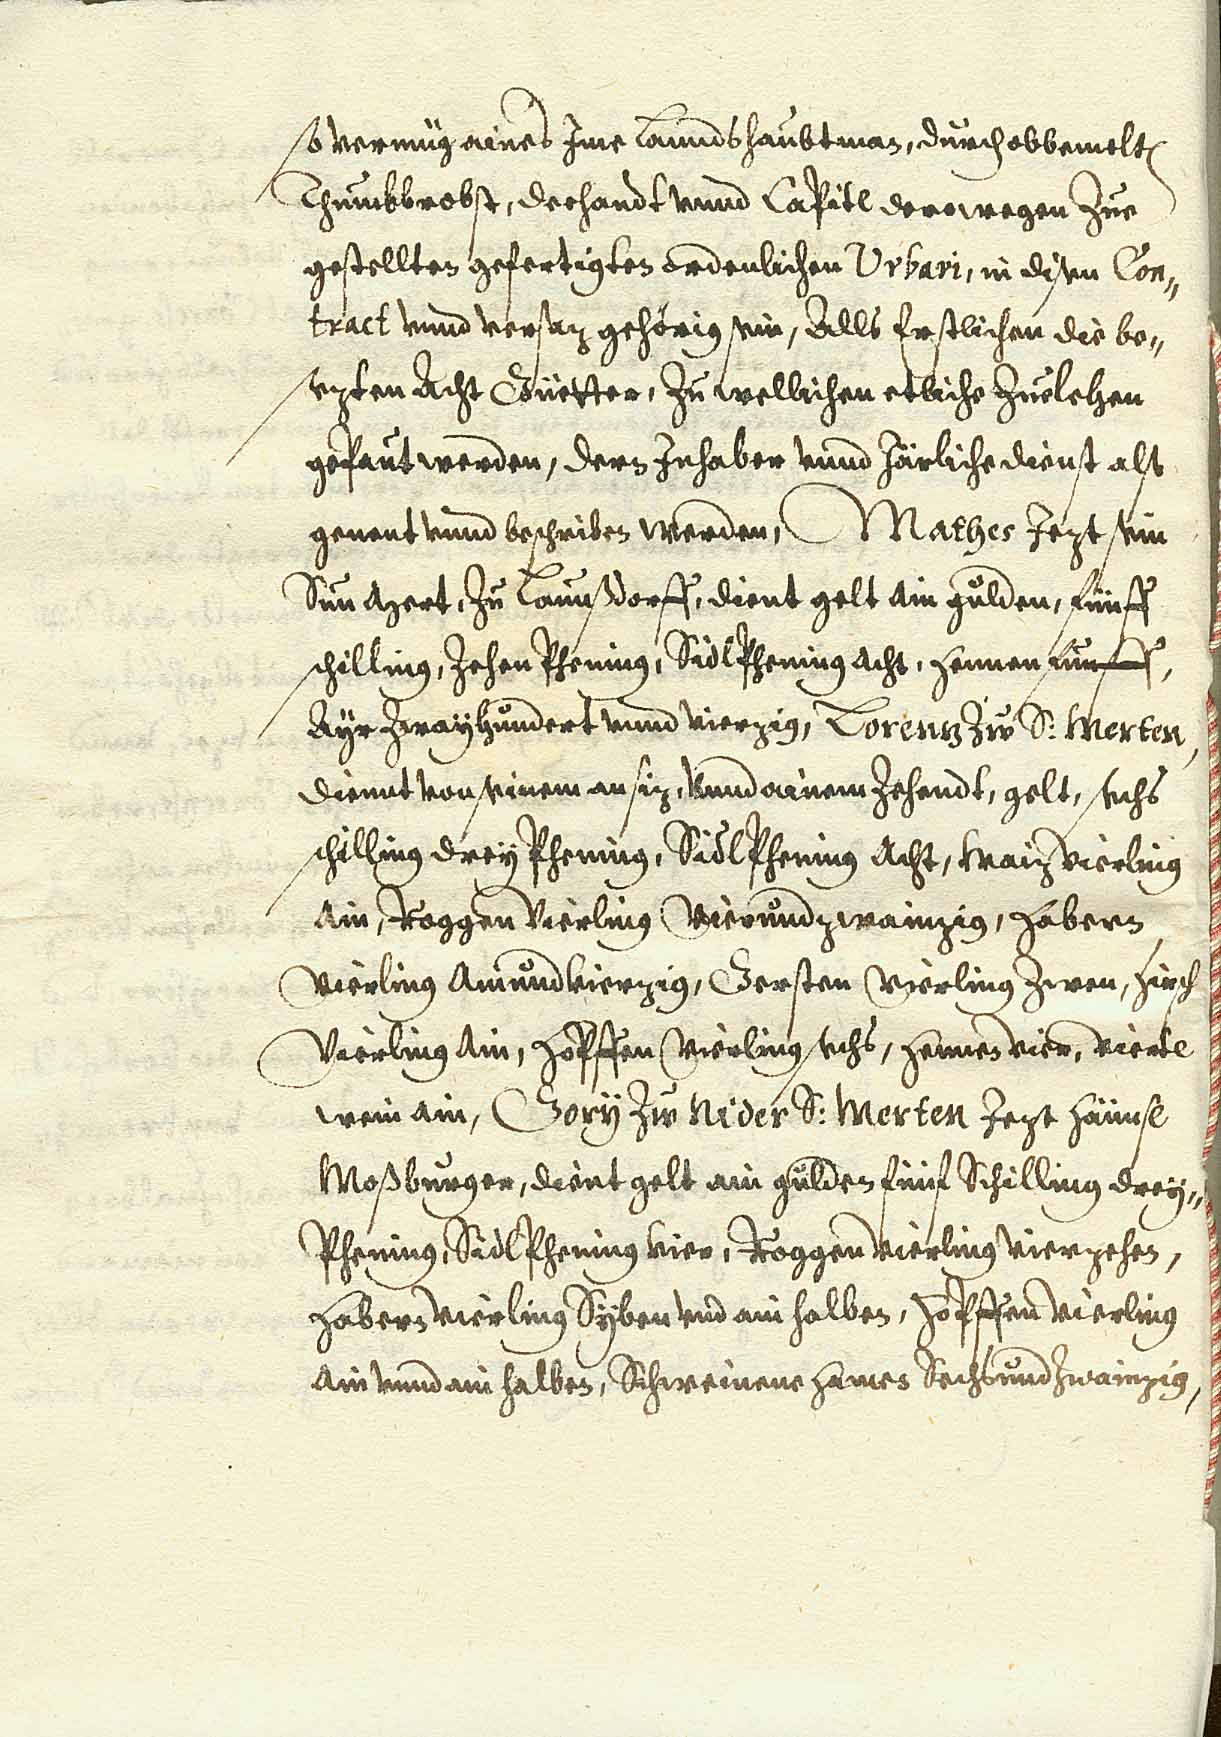 so vermüg aines Jme Lanndshaubtman, durch obbemelte
Thumbbrobst, dechandt vnnd Capitl derowegen Zue
gestellten gefertigten ordenlichen Urbari, in disen Con„
tract vnnd versaz gehörig sein, Alls Erstlichen die be„
sezten Acht Güetter, Zu wellichen etliche Zuelehen
gepaut werden, dern Inhaber vnnd Järliche dienst alß
genent vnnd beschriben werden, Mathes Jezt sein
Sun Azert, Zu Launßdorff, dient gelt Ain gulden, fünff
schilling, Zehen Phening, Sidlphening Acht, Hennen fünff,
Ayr Zwayhundert vnnd vierzig, Lorentz Zu S: Merten,
diennt von seinem ansiz, vnnd ainem Zehendt, gelt, sechs
schilling drey Phening, Sidlphening Acht, Waiz Vierling
Ain, Roggen Vierling Vierundzwainzig, Habern
Vierling Ainundvierzig, Gersten Vierling Zwen, Hirsch
Vierling Ain, Höpffen Vierling sechs, Hennen vier, Viertl
wein Ain, Gory Zu Nider S: Merten Jezt Hännsl
Moßburger, dient gelt ain gulden fünf Schilling drey„
Phening, Sidlphening vier, Roggen Vierling Vierzehen,
Habern Vierling Syben vnd ain halben, Höpffen Vierling
Ain vnnd ain halben, Schweinene Hamen Sechsundzwainzig,